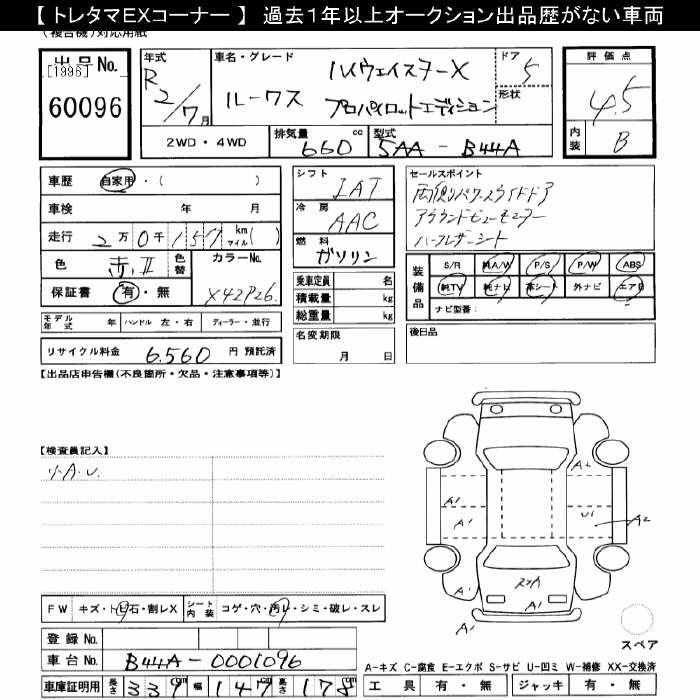 【 トレタマEXコーナー 】 過去1年以上オークション出品歴がない車両
(複合機)対応用紙
出品 No.
[1996]
60096
年式
R2/7月
車名・グレード
ルークス
ハイウェイスターX
プロパイロットエディション
ドア
5
形状
評価点
4.5
内装
B
2WD ・ 4WD
排気量
660 cc
型式
5AA - B44A
車歴 自家用 ・ ( )
車検 年 月
走行 2万0千157 km マイル( )
色 赤II 色替
カラーNo. X42P26.
保証書 有 ・ 無
シフト
IAT
冷房
AAC
燃料
ガソリン
乗車定員 名
積載量 kg
総重量 kg
名変期限
月 日
セールスポイント
両側パワースライドドア
アラウンドビューモニター
ハーフレザーシート
装備品
S/R 純A/W P/S P/W ABS
純TV 純ナビ 革シート 外ナビ エアB
ナビ型番:
後日品
モデル年式 年 ハンドル 左・右 ディーラー・並行
リサイクル料金 6,560 円 預託済
【出品店申告欄(不良箇所・欠品・注意事項等)】
【検査員記入】
小A.U.
A1
A1
A1
A2
U1
A2
A1
A1
スリA
A1
FW キズ・トビ石・割レX
シート内装 コゲ・穴・汚レ・シミ・破レ・スレ
登録 No.
車台 No. B44A-0001096
車庫証明用 長さ 339 cm 幅 147 cm 高さ 178 cm
スペア
A-キズ C-腐食 E-エクボ S-サビ U-凹ミ W-補修 XX-交換済
工具 有・無 ジャッキ 有・無